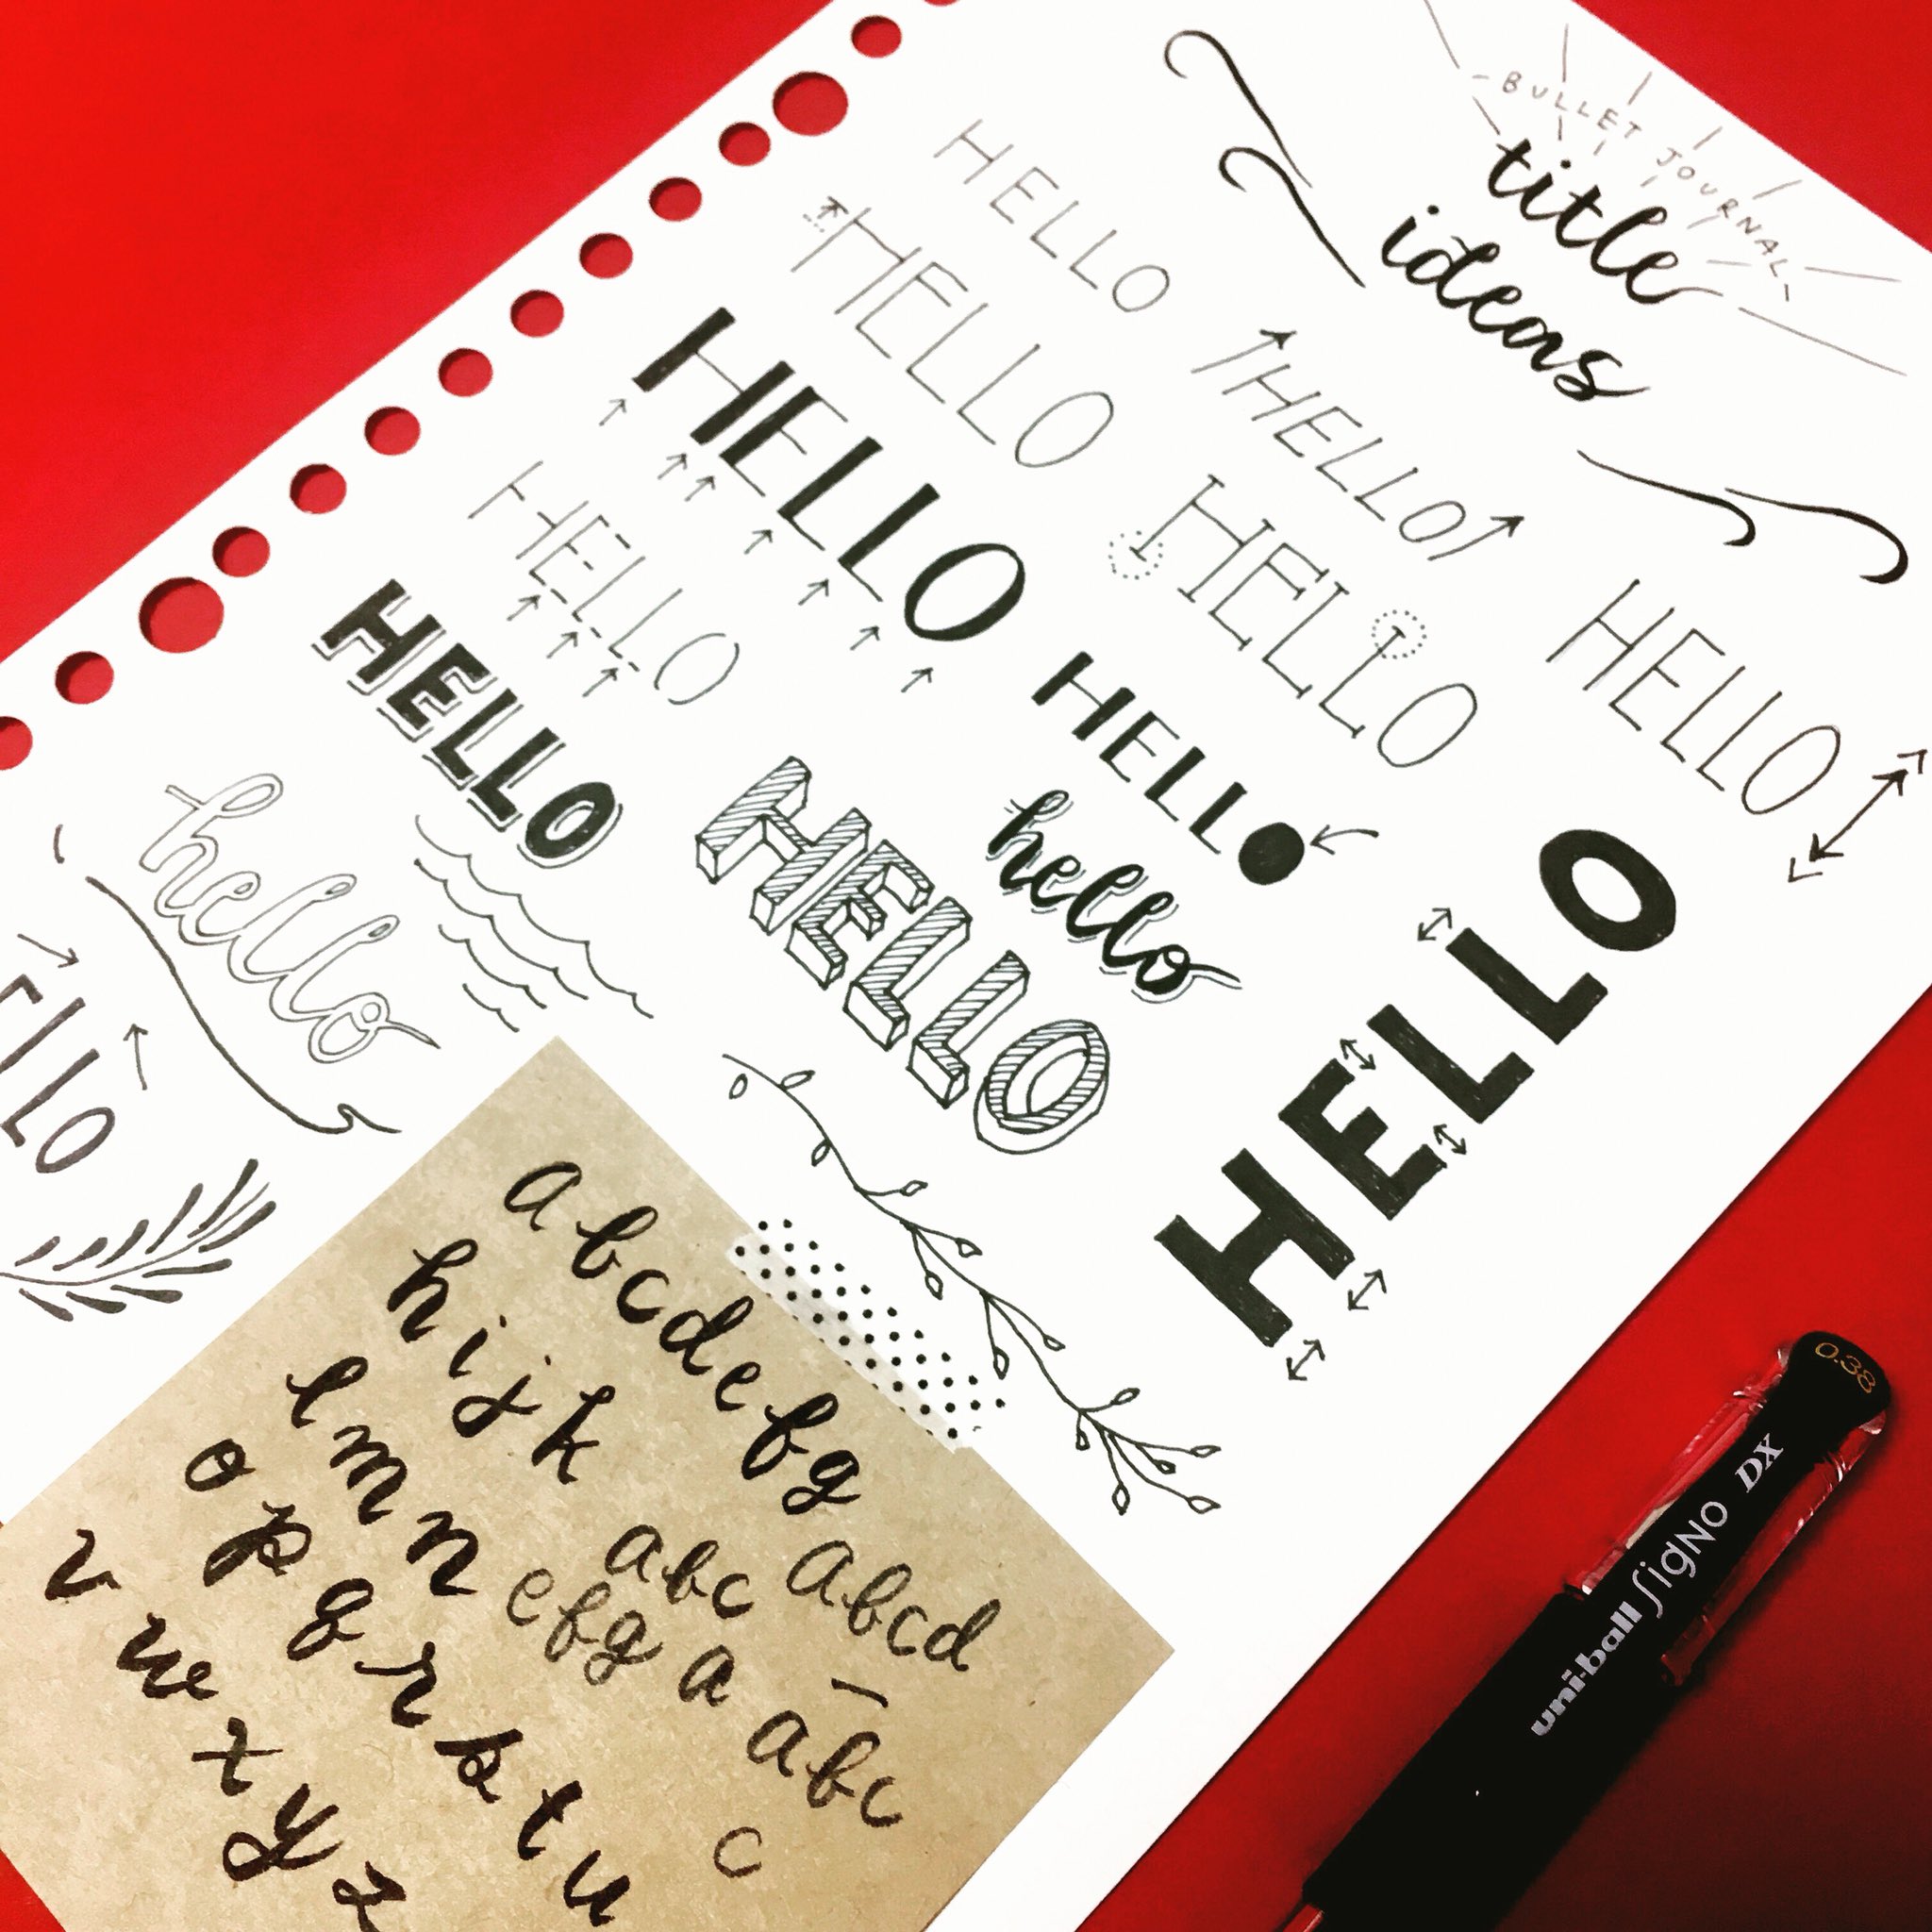 BULLET JOURNAL
title
ideas
HELLO
HELLO
HELLO
HELLO
HELLO
HELLO
HELLO
HELLO
HELLO
hello
HELLO
hello
HELLO
ELLO
a b c d e f g
h i j k
l m n
o p q r s t u
v w x y z
abc
efg a
abcd
abc
c
uni-ball SigNO DX
0.38